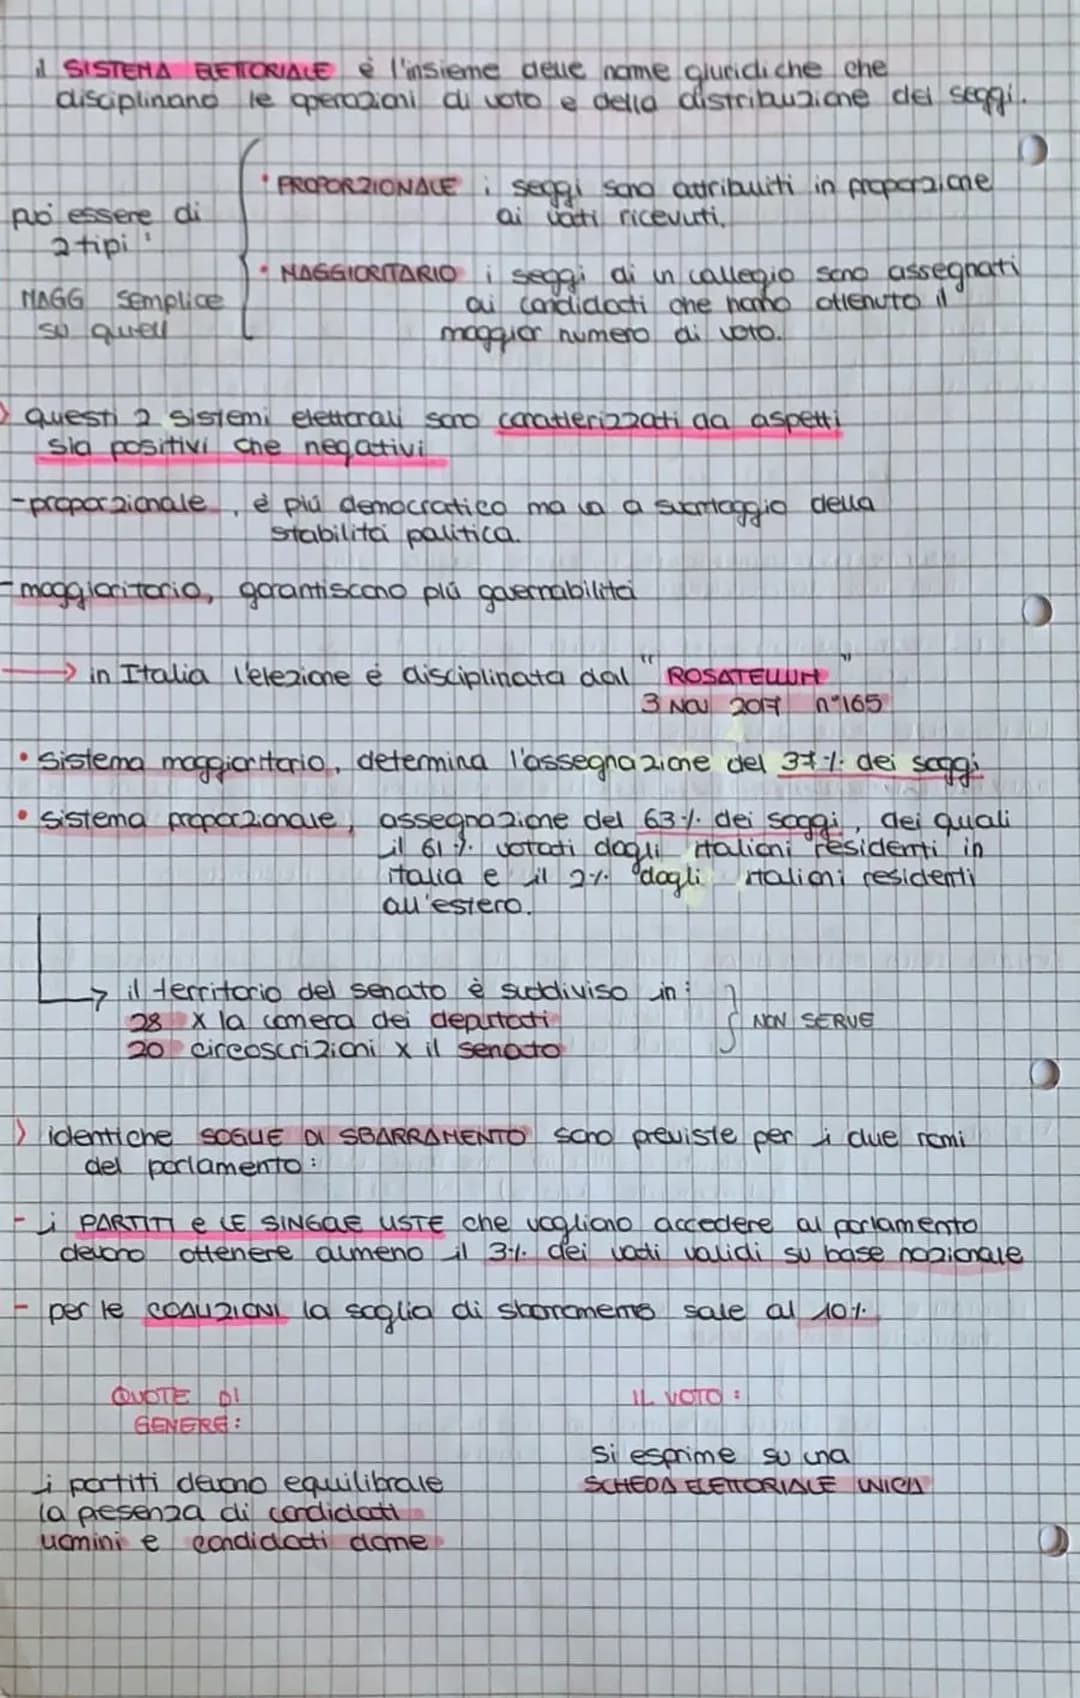 il SISTEMA ELETTORIALE è l'insieme delle norme giuridiche che
disciplinano le operazioni di voto e della distribuzione dei seggi.
può essere di
2 tipi:
• PROPORZIONALE i seggi sono attribuiti in proporzione
ai voti ricevuti.
• MAGGIORITARIO i seggi di un collegio sono assegnati
ai candidati che hanno ottenuto il
maggior numero di voto.
MAGG semplice
su quell
questi 2 sistemi elettorali sono caratterizzati da aspetti
sia positivi che negativi
- proporzionale, è più democratico ma va a svantaggio della
stabilità politica.
- maggioritario, garantiscono più governabilità
→ in Italia l'elezione è disciplinata dal "ROSATELLUM"
3 NOV 2017 n°165
• sistema maggioritario, determina l'assegnazione del 37% dei seggi
• sistema proporzionale, assegnazione del 63% dei seggi, dei quali
il 61% votati dagli italiani residenti in
italia e il 2% dagli italiani residenti
all'estero.
→ il territorio del senato è suddiviso in:
28 x la camera dei deputati
20 circoscrizioni x il senato
NON SERVE
identiche SOGLIE DI SBARRAMENTO sono previste per i due rami
del parlamento:
- i PARTITI e LE SINGOLE LISTE che vogliono accedere al parlamento
devono ottenere almeno il 3% dei voti validi su base nazionale
- per le COALIZIONI la soglia di sbarramento sale al 10%.
QUOTE DI
GENERE:
i partiti devono equilibrale
la presenza di candidati
uomini e candidati donne
IL VOTO:
si esprime su una
SCHEDA ELETTORIALE UNICA